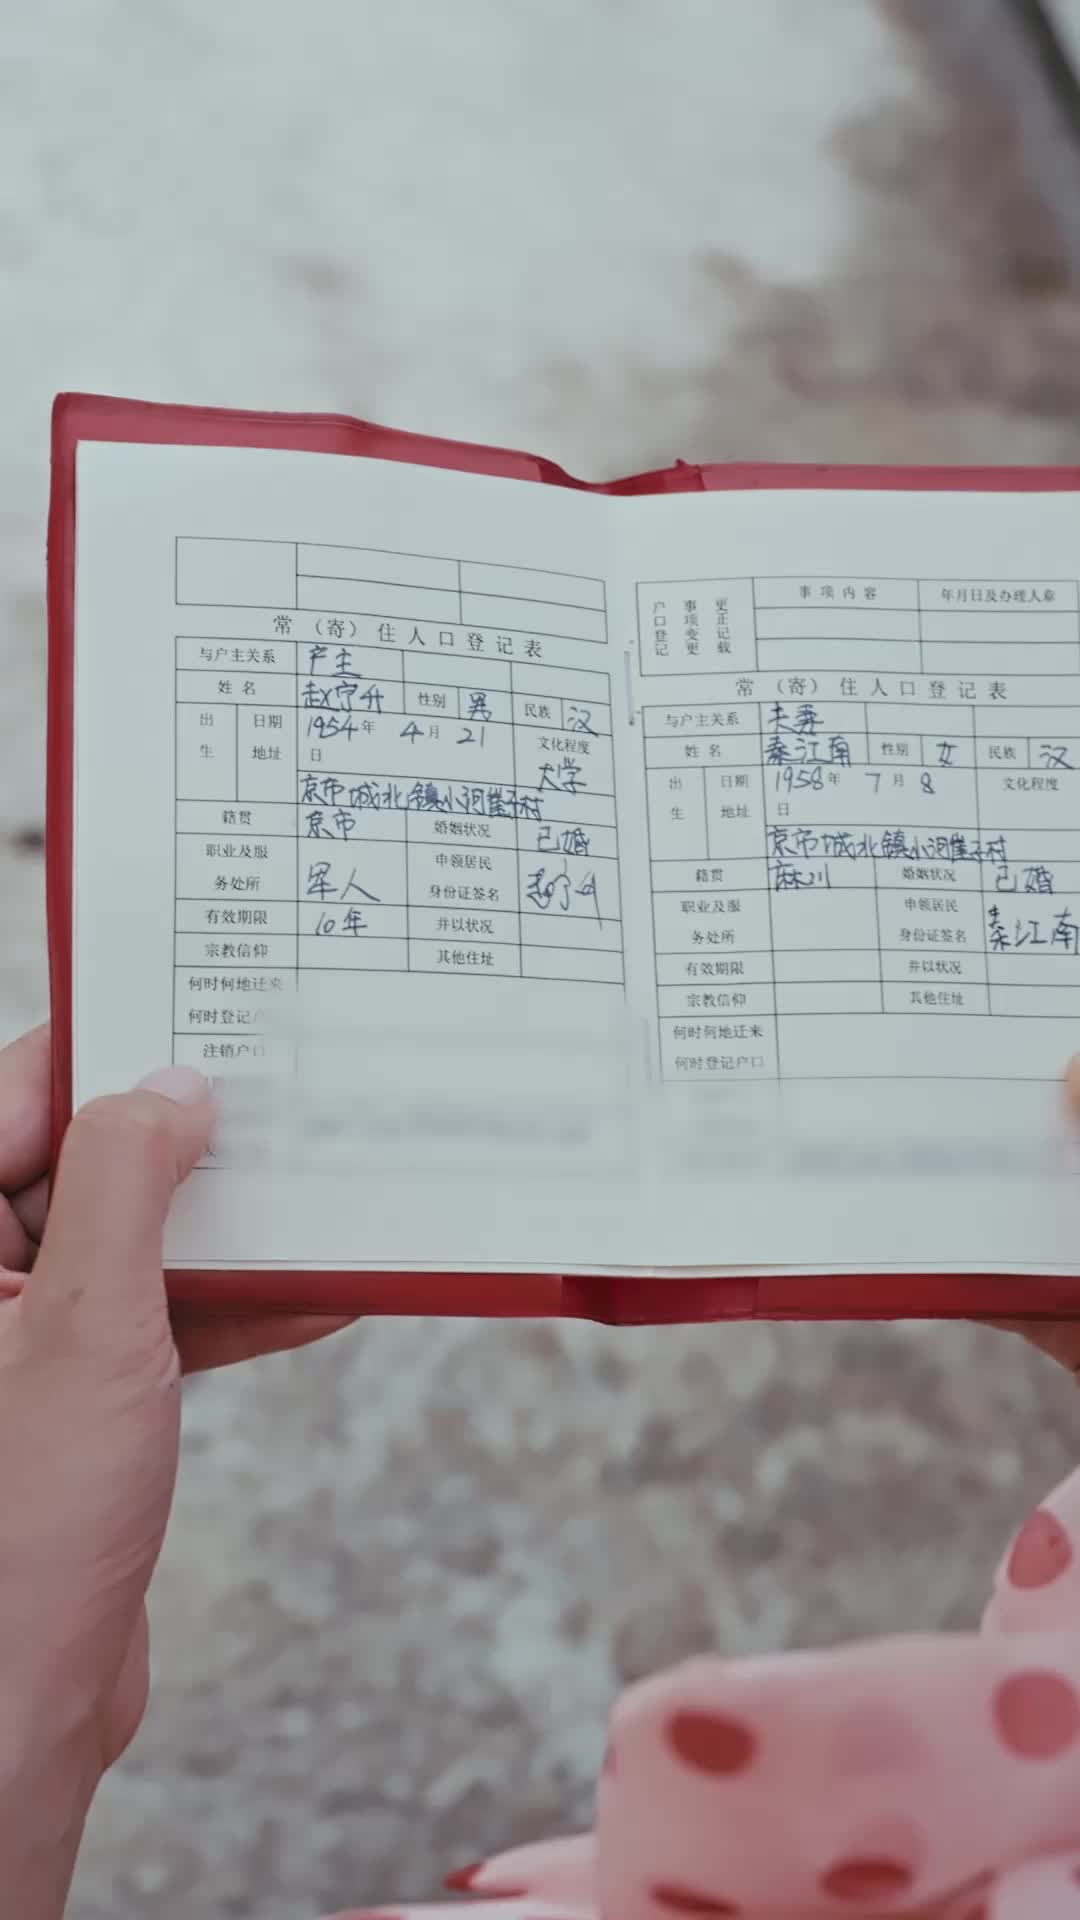 常（寄）住人口登记表
与户主关系 户主
姓名 赵宁升 性别 男 民族 汉
出生 日期 1954年 4月 21日 文化程度 大学
地址 京市城北镇小河崔子村
籍贯 京市 婚姻状况 已婚
职业及服务处所 军人 申领居民身份证签名
有效期限 10年 并以状况
宗教信仰 其他住址
何时何地迁来
何时登记户
注销户口
户口登记 事项变更 更正记载 事项内容 年月日及办理人章
常（寄）住人口登记表
与户主关系 夫妻
姓名 秦江南 性别 女 民族 汉
出生 日期 1958年 7月 8日 文化程度
地址 京市城北镇小河崔子村
籍贯 麻川 婚姻状况 已婚
职业及服务处所 申领居民身份证签名 秦江南
有效期限 并以状况
宗教信仰 其他住址
何时何地迁来
何时登记户口